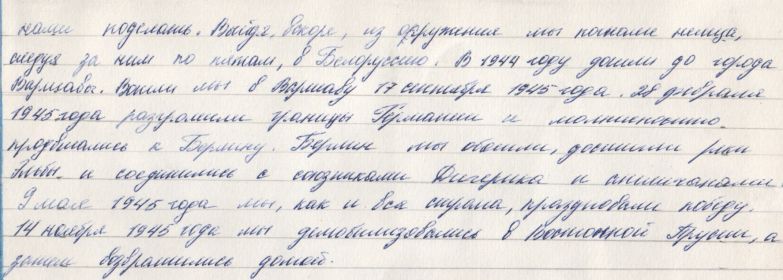 нами поделать. Выйдя, вскоре, из окружения мы погнали немца,
следуя за ним по пятам, в Белоруссию. В 1944 году дошли до города
Варшавы. Вошли мы в Варшаву 17 сентября 1945 года. 28 февраля
1945 года разгромили границы Германии и молниеносно
продвигались к Берлину. Берлин мы обошли, достигли реки
Эльбы и соединились с союзниками Америка и англичанами.
9 мая 1945 года мы, как и вся страна, праздновали победу.
14 ноября 1945 года мы демобилизовались в Восточной Пруссии, а
затем возвратились домой.